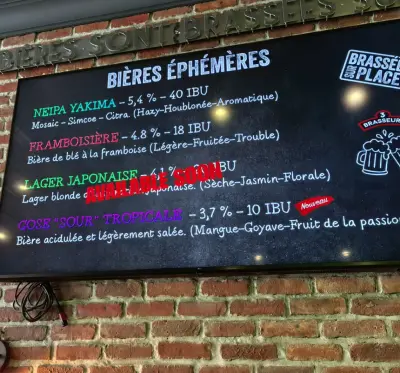 BIÈRES SONT BRASSÉES SU
BIÈRES ÉPHÉMÈRES
NEIPA YAKIMA – 5,4 % – 40 IBU
Mosaic – Simcoe – Citra. (Hazy–Houblonée–Aromatique)
FRAMBOISIÈRE – 4.8 % – 18 IBU
Bière de blé à la framboise (Légère–Fruitée–Trouble)
LAGER JAPONAISE – % IBU
AVAILABLE SOON
Lager blonde japonaise. (Sèche–Jasmin–Florale)
GOSE "SOUR" TROPICALE – 3,7 % – 10 IBU Nouveau
Bière acidulée et légèrement salée. (Mangue–Goyave–Fruit de la passion
BRASSÉE
SUR
PLACE
3
BRASSEUR